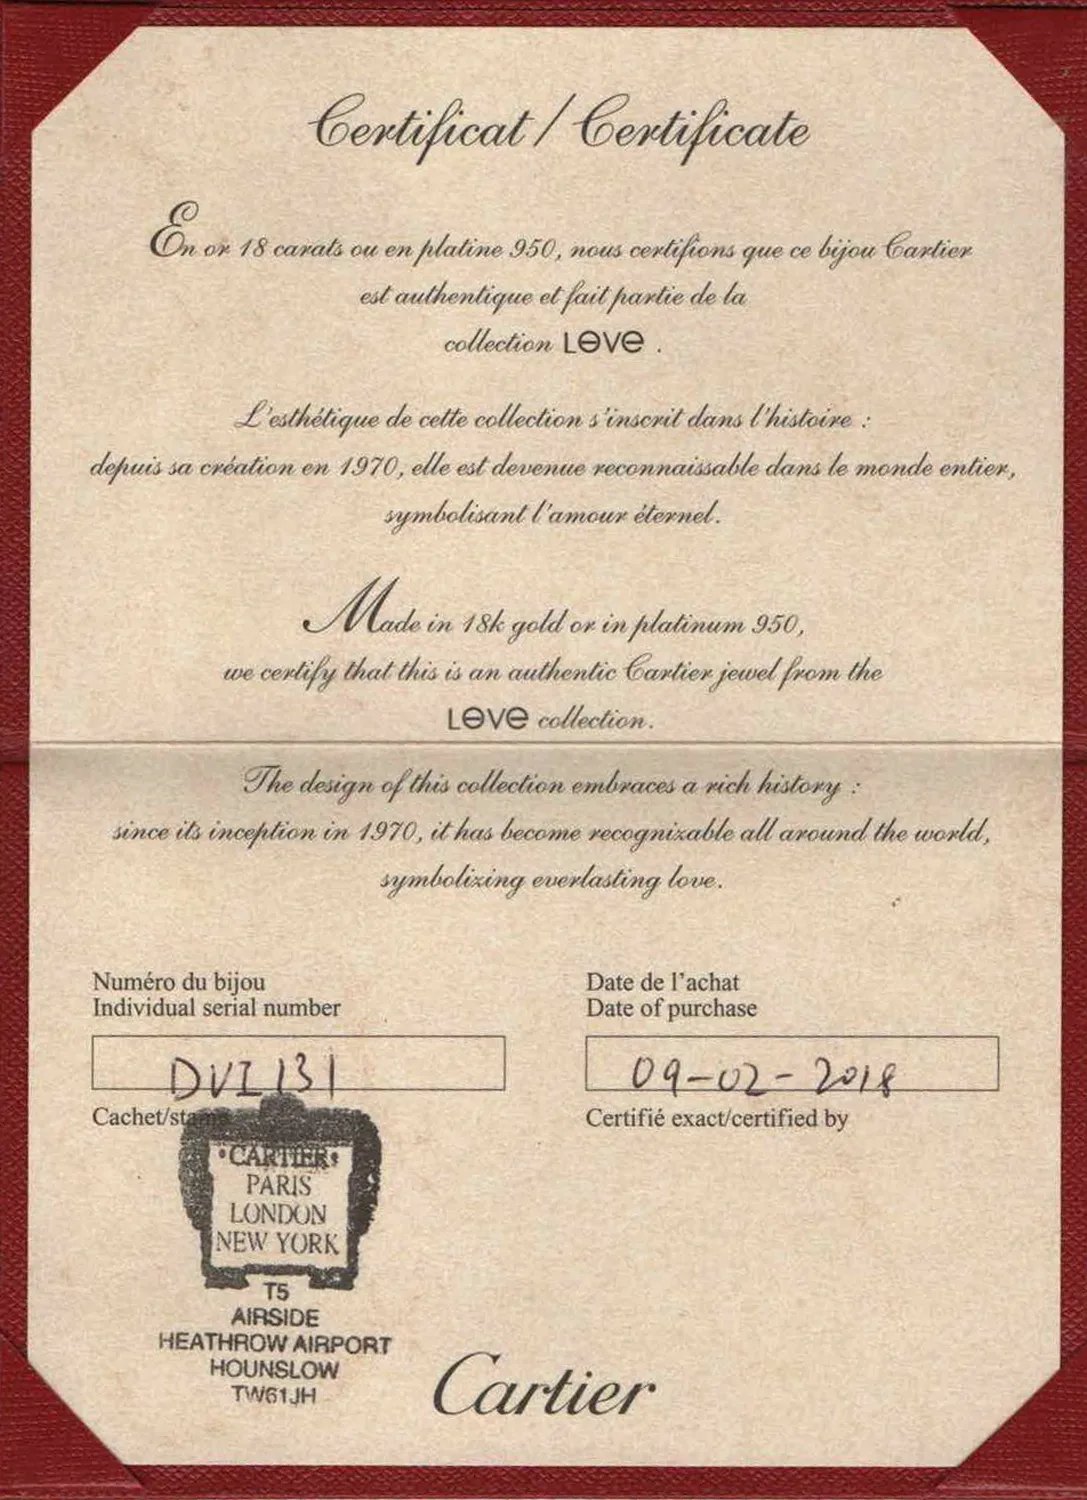 Certificat / Certificate
En or 18 carats ou en platine 950, nous certifions que ce bijou Cartier
est authentique et fait partie de la
collection LOVE .
L'esthétique de cette collection s'inscrit dans l'histoire :
depuis sa création en 1970, elle est devenue reconnaissable dans le monde entier,
symbolisant l'amour éternel.
Made in 18k gold or in platinum 950,
we certify that this is an authentic Cartier jewel from the
LOVE collection.
The design of this collection embraces a rich history :
since its inception in 1970, it has become recognizable all around the world,
symbolizing everlasting love.
Numéro du bijou
Individual serial number
DVI131
Cachet/stamp
•CARTIER•
PARIS
LONDON
NEW YORK
T5
AIRSIDE
HEATHROW AIRPORT
HOUNSLOW
TW61JH
Date de l'achat
Date of purchase
09-02-2018
Certifié exact/certified by
Cartier